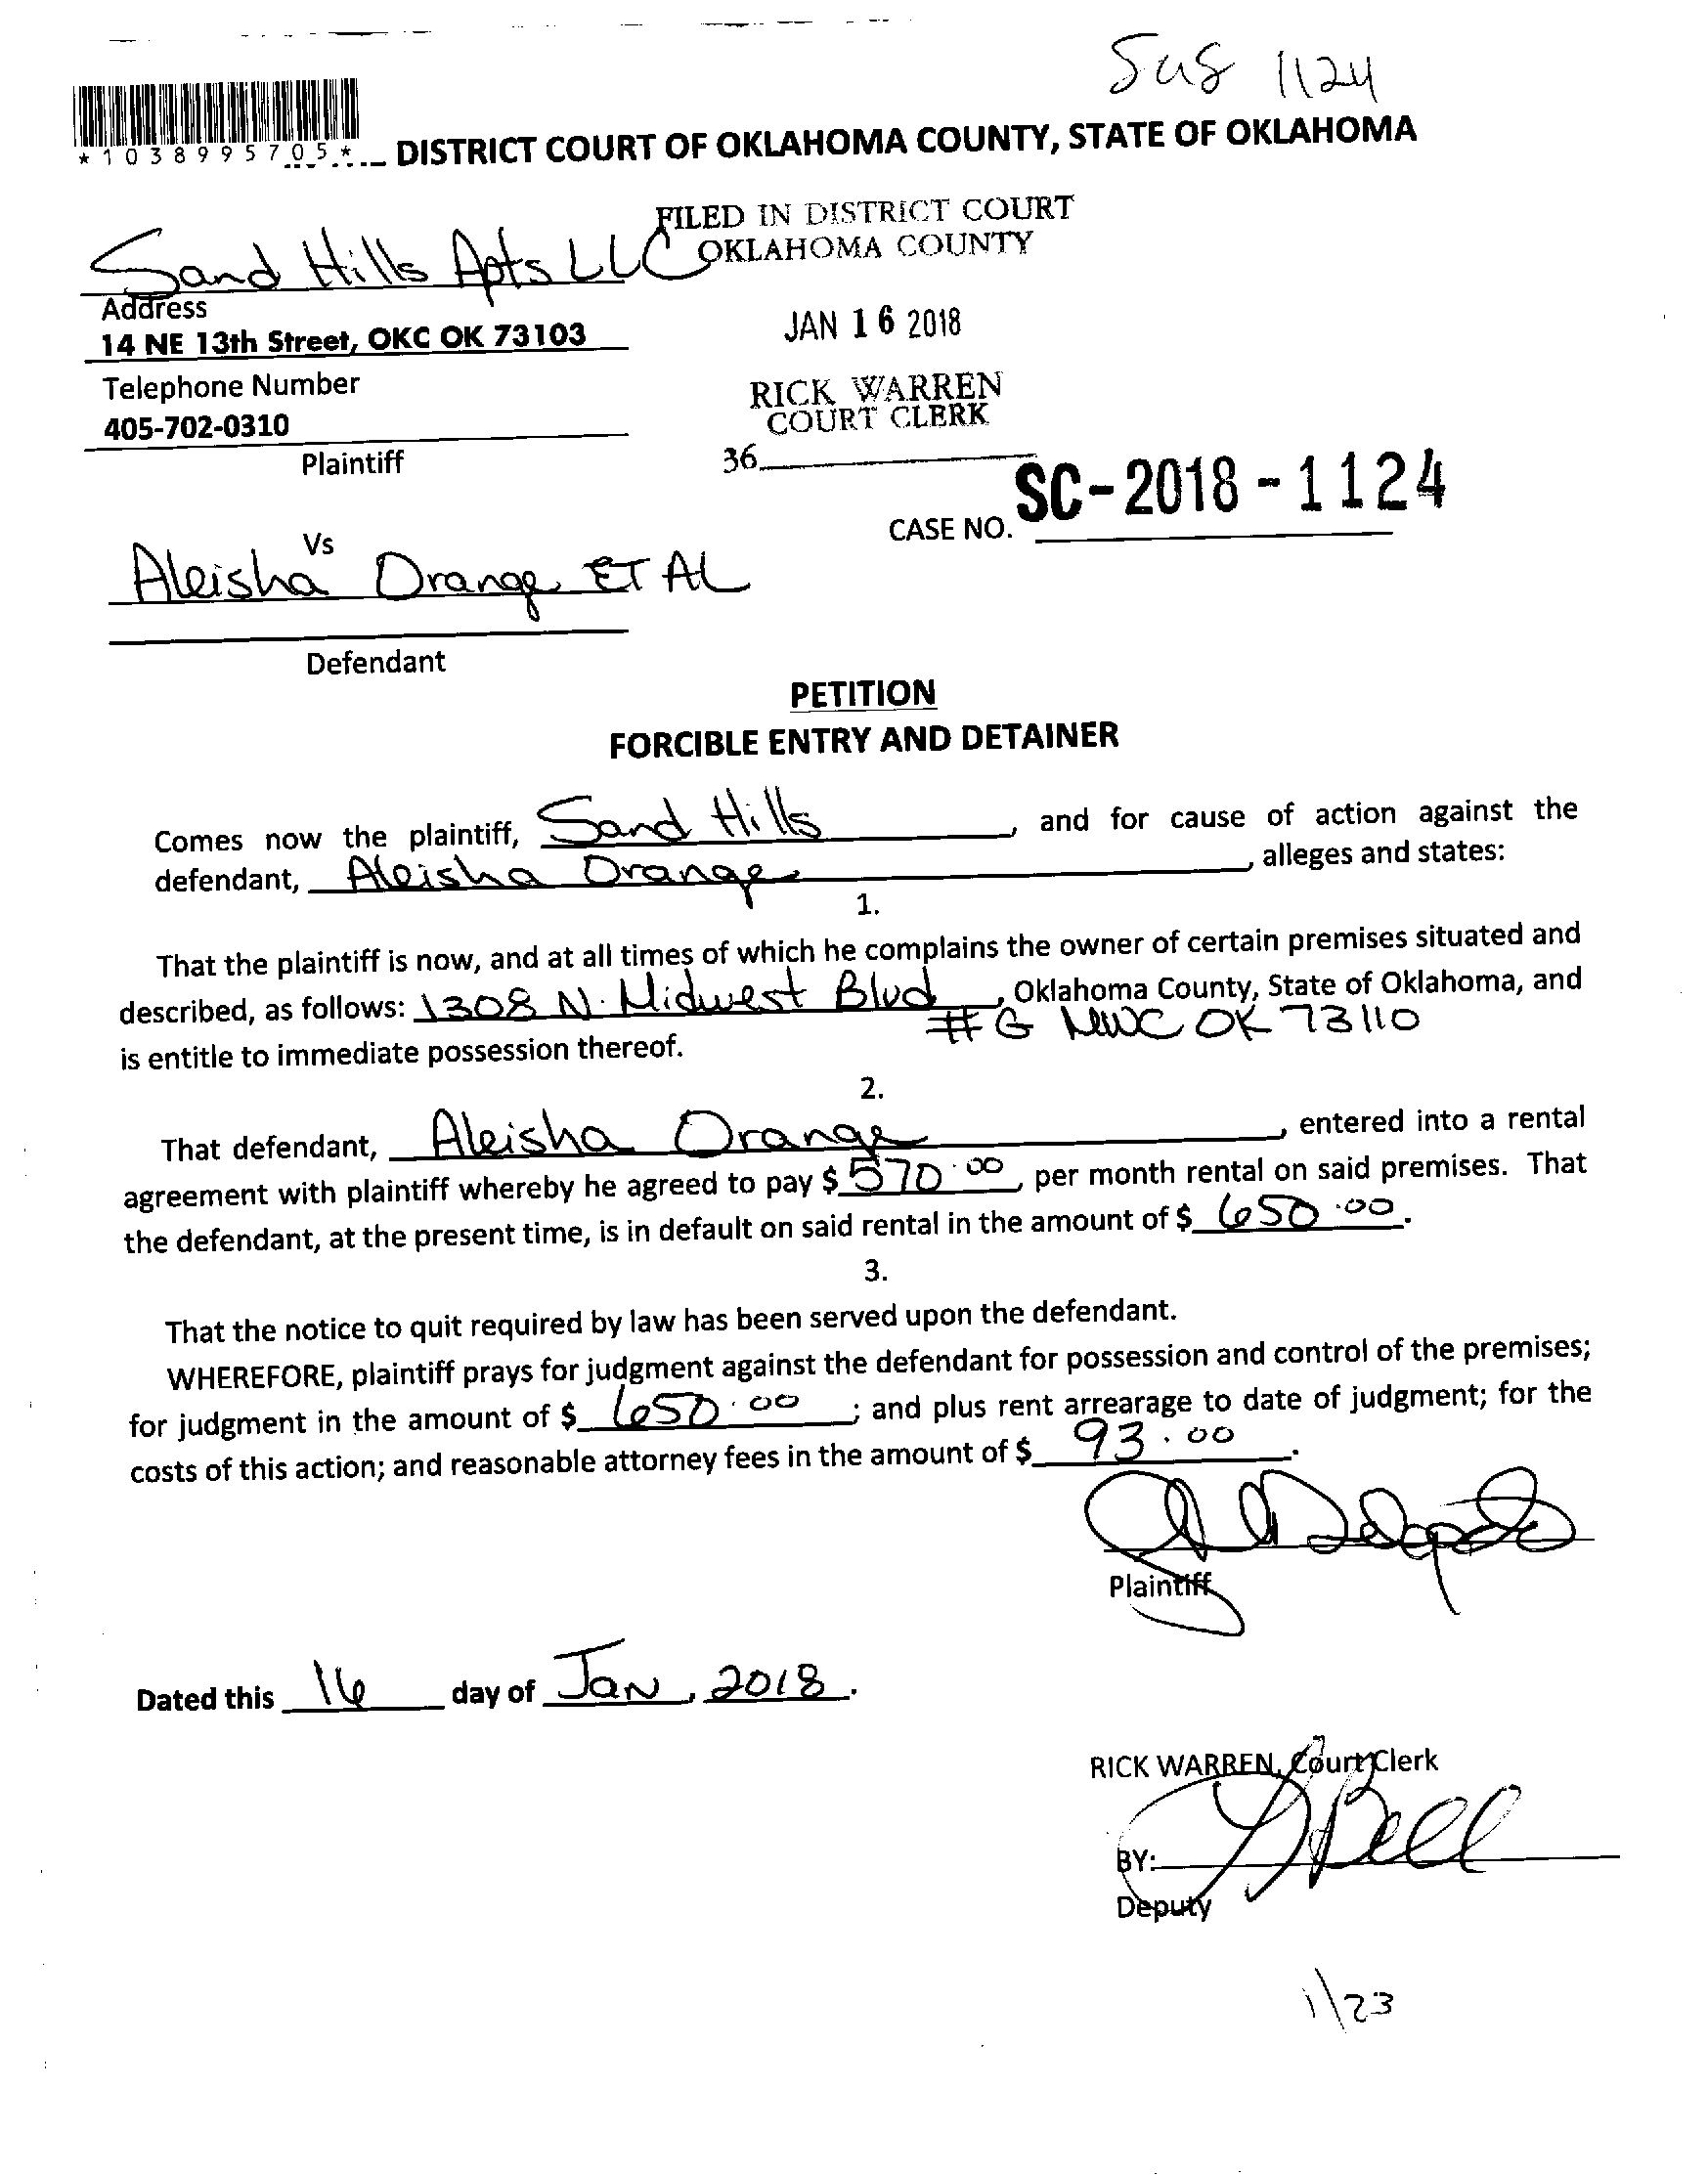 1124
*1038995705* DISTRICT COURT OF OKLAHOMA COUNTY, STATE OF OKLAHOMA
FILED IN DISTRICT COURT
OKLAHOMA COUNTY
Sand Hills Apts LLC
Address
14 NE 13th Street, OKC OK 73103
JAN 16 2018
Telephone Number
RICK WARREN
COURT CLERK
405-702-0310
Plaintiff
36
CASE NO. SC-2018-1124
Vs
Aleisha Orange ET AL
Defendant
PETITION
FORCIBLE ENTRY AND DETAINER
Comes now the plaintiff, Sand Hills, and for cause of action against the
defendant, Aleisha Orange, alleges and states:
1.
That the plaintiff is now, and at all times of which he complains the owner of certain premises situated and
described, as follows: 1308 N. Midwest Blvd, Oklahoma County, State of Oklahoma, and
#G MWC OK 73110
is entitle to immediate possession thereof.
2.
That defendant, Aleisha Orange, entered into a rental
agreement with plaintiff whereby he agreed to pay $570.00, per month rental on said premises. That
the defendant, at the present time, is in default on said rental in the amount of $650.00.
3.
That the notice to quit required by law has been served upon the defendant.
WHEREFORE, plaintiff prays for judgment against the defendant for possession and control of the premises;
for judgment in the amount of $650.00; and plus rent arrearage to date of judgment; for the
costs of this action; and reasonable attorney fees in the amount of $93.00.
Plaintiff
Dated this 16 day of Jan, 2018.
RICK WARREN, Court Clerk
BY: Bell
Deputy
1/23